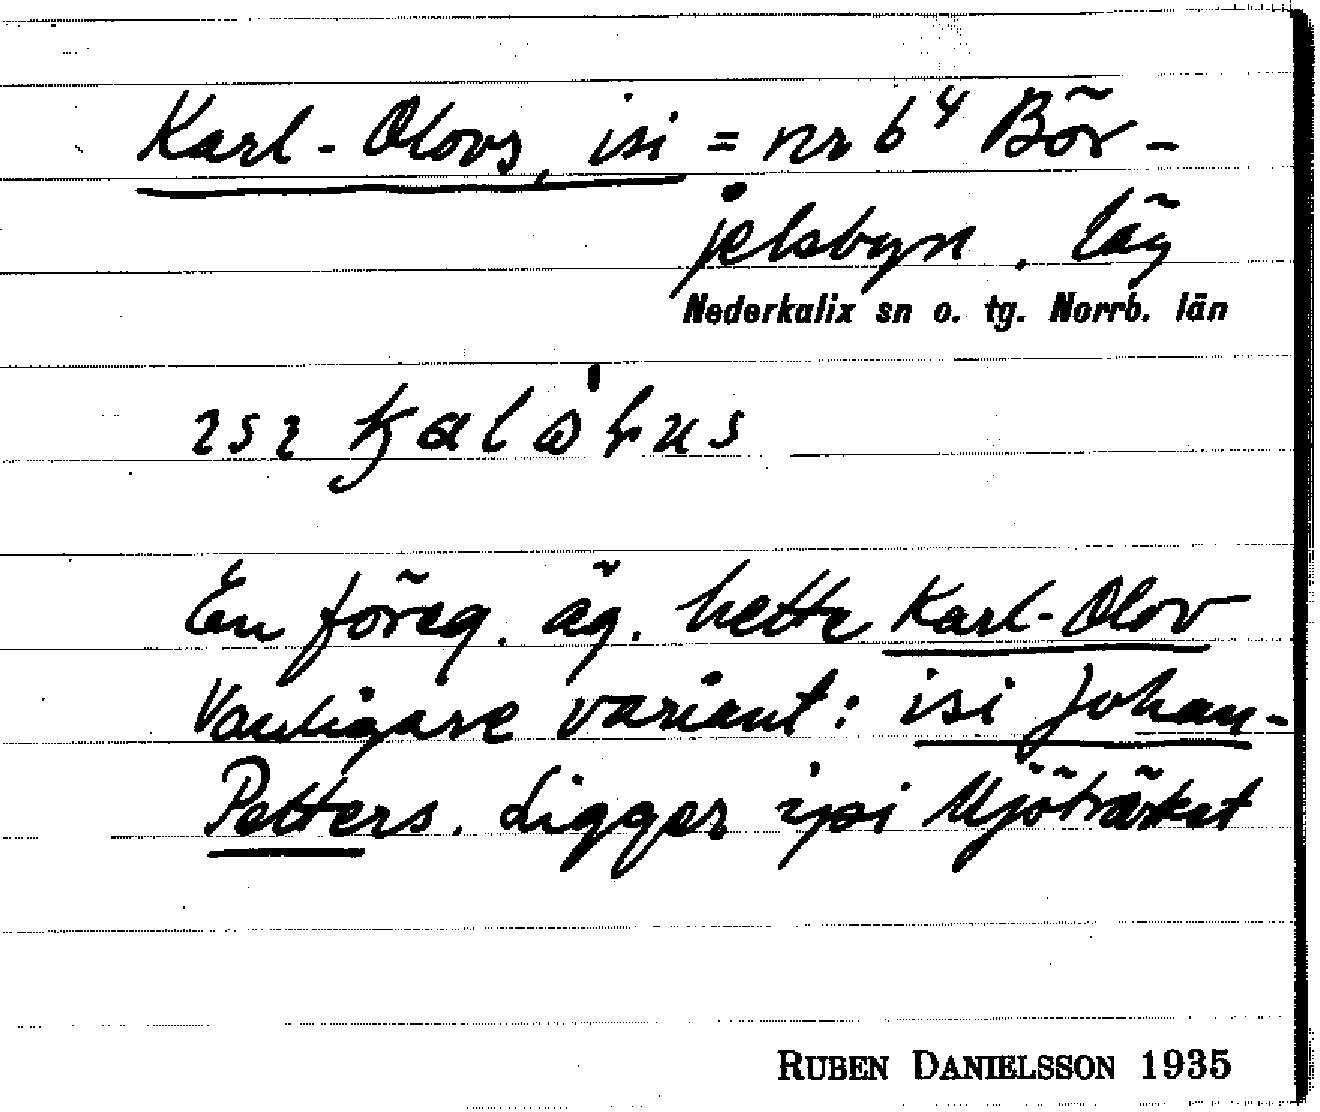 Karl-Olovs, isi = nr 6⁴ Bör-
jelsbyn. läg
Nederkalix sn o. tg. Norrb. län
En föreg. äg. hette Karl-Olov
Vanligare variant: isi Johan-
Petters. Ligger ipi Mjöträsket
RUBEN DANIELSSON 1935